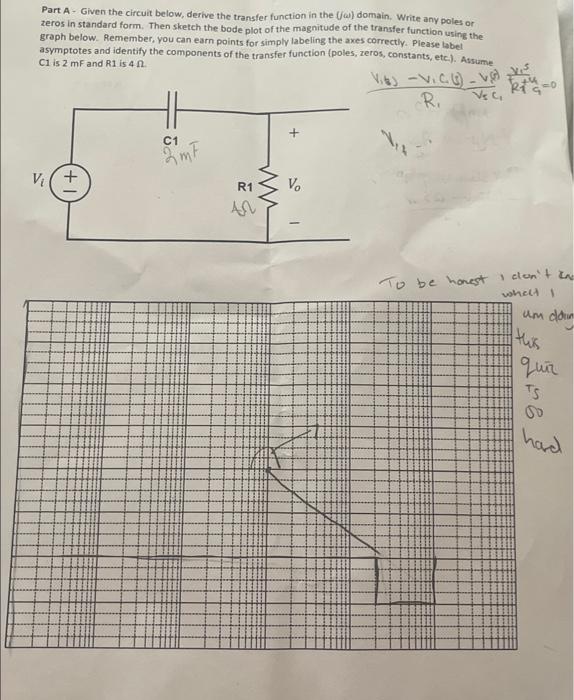 Part A - Given the circuit below, derive the transfer function in the (jω) domain. Write any poles or
zeros in standard form. Then sketch the bode plot of the magnitude of the transfer function using the
graph below. Remember, you can earn points for simply labeling the axes correctly. Please label
asymptotes and identify the components of the transfer function (poles, zeros, constants, etc.). Assume
C1 is 2 mF and R1 is 4 Ω.
R1
=0
C1
2mF
+
Vi
+
R1
4Ω
Vo
To be honest I don't
what I
um doing
this
quiz
Is
so
hard